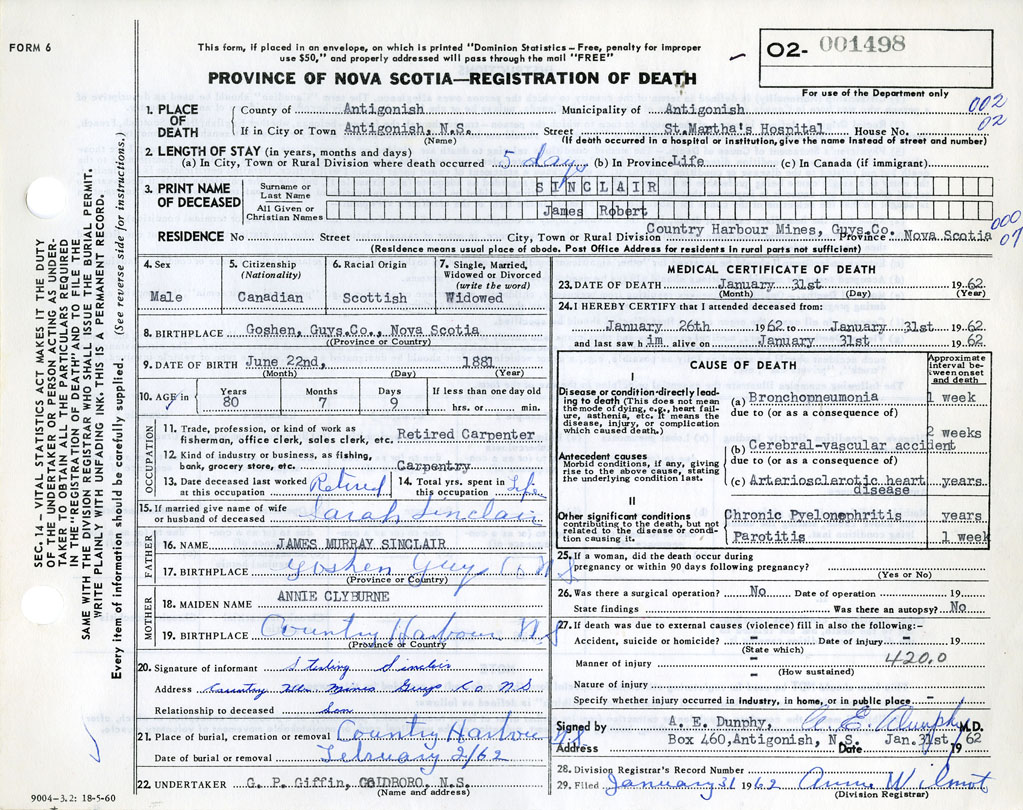 FORM 6
This form, if placed in an envelope, on which is printed "Dominion Statistics – Free, penalty for improper
use $50," and properly addressed will pass through the mail "FREE"
PROVINCE OF NOVA SCOTIA—REGISTRATION OF DEATH
O2- 001498
For use of the Department only
002
02
1. PLACE OF DEATH
County of Antigonish Municipality of Antigonish
If in City or Town Antigonish, N.S. Street St.Martha's Hospital House No.
(Name) (If death occurred in a hospital or institution, give the name instead of street and number)
2. LENGTH OF STAY (in years, months and days)
(a) In City, Town or Rural Division where death occurred 5 days (b) In Province Life (c) In Canada (if immigrant)
3. PRINT NAME OF DECEASED
Surname or Last Name SINCLAIR
All Given or Christian Names James Robert
000
07
RESIDENCE No Street City, Town or Rural Division Country Harbour Mines, Guys.Co. Province Nova Scotia
(Residence means usual place of abode. Post Office Address for residents in rural parts not sufficient)
SEC. 14 – VITAL STATISTICS ACT MAKES IT THE DUTY
OF THE UNDERTAKER OR PERSON ACTING AS UNDER-
TAKER TO OBTAIN ALL THE PARTICULARS REQUIRED
IN THE "REGISTRATION OF DEATH" AND TO FILE THE
SAME WITH THE DIVISION REGISTRAR WHO SHALL ISSUE THE BURIAL PERMIT.
WRITE PLAINLY WITH UNFADING INK. THIS IS A PERMANENT RECORD.
Every item of information should be carefully supplied. (See reverse side for instructions.)
4. Sex
Male
5. Citizenship
(Nationality)
Canadian
6. Racial Origin
Scottish
7. Single, Married,
Widowed or Divorced
(write the word)
Widowed
8. BIRTHPLACE Goshen, Guys.Co., Nova Scotia
((Province or Country)
9. DATE OF BIRTH June 22nd, 1881
(Month) (Day) (Year)
10. AGE in
Years Months Days If less than one day old
80 7 9 hrs. or min.
OCCUPATION
11. Trade, profession, or kind of work as
fisherman, office clerk, sales clerk, etc. Retired Carpenter
12. Kind of industry or business, as fishing,
bank, grocery store, etc. Carpentry
13. Date deceased last worked
at this occupation Retired
14. Total yrs. spent in
this occupation Life
15. If married give name of wife
or husband of deceased Sarah Sinclair
FATHER
16. NAME JAMES MURRAY SINCLAIR
17. BIRTHPLACE Goshen Guys Co N S
(Province or Country)
MOTHER
18. MAIDEN NAME ANNIE CLYBURNE
19. BIRTHPLACE Country Harbour N S
(Province or Country
20. Signature of informant Sterling Sinclair
Address Country Hbr Mines Guys Co N S
Relationship to deceased Son
21. Place of burial, cremation or removal Country Harbour N.S
Date of burial or removal February 2/62
22. UNDERTAKER G. P. Giffin, GOLDBORO, N.S.
(Name and address)
9004-3.2: 18-5-60
MEDICAL CERTIFICATE OF DEATH
23. DATE OF DEATH January 31st 1962
(Month) (Day) (Year)
24. I HEREBY CERTIFY that I attended deceased from:
January 26th 1962 to January 31st 1962
and last saw him alive on January 31st 1962
CAUSE OF DEATH
Approximate
interval be-
tween onset
and death
I
Disease or condition directly lead-
ing to death (This does not mean
the mode of dying, e.g., heart fail-
ure, asthenia, etc. It means the
disease, injury, or complication
which caused death.)
(a) Bronchopneumonia 1 week
due to (or as a consequence of)
2 weeks
(b) Cerebral-vascular accident
Antecedent causes
Morbid conditions, if any, giving
rise to the above cause, stating
the underlying condition last.
due to (or as a consequence of)
(c) Arteriosclerotic heart disease years
II
Other significant conditions
contributing to the death, but not
related to the disease or condi-
tion causing it.
Chronic Pyelonephritis years
Parotitis 1 week
25. If a woman, did the death occur during
pregnancy or within 90 days following pregnancy?
(Yes or No)
26. Was there a surgical operation? No Date of operation 19
State findings Was there an autopsy? No
27. If death was due to external causes (violence) fill in also the following:-
Accident, suicide or homicide? – Date of injury – 19
(State which)
Manner of injury – 420.0
(How sustained)
Nature of injury
Specify whether injury occurred in Industry, in home, or in public place –
Signed by A. E. Dunphy, A. E. Dunphy M.D.
Address Box 460, Antigonish, N.S. Date Jan. 31st 1962
28. Division Registrar's Record Number
29. Filed January 31 1962 Anna Wilmot
(Division Registrar)